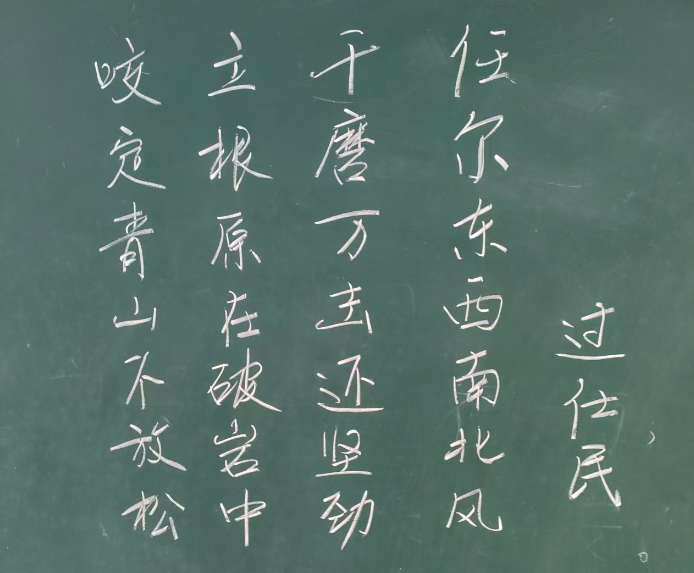 咬定青山不放松
立根原在破岩中
千磨万击还坚劲
任尔东西南北风
过仕民